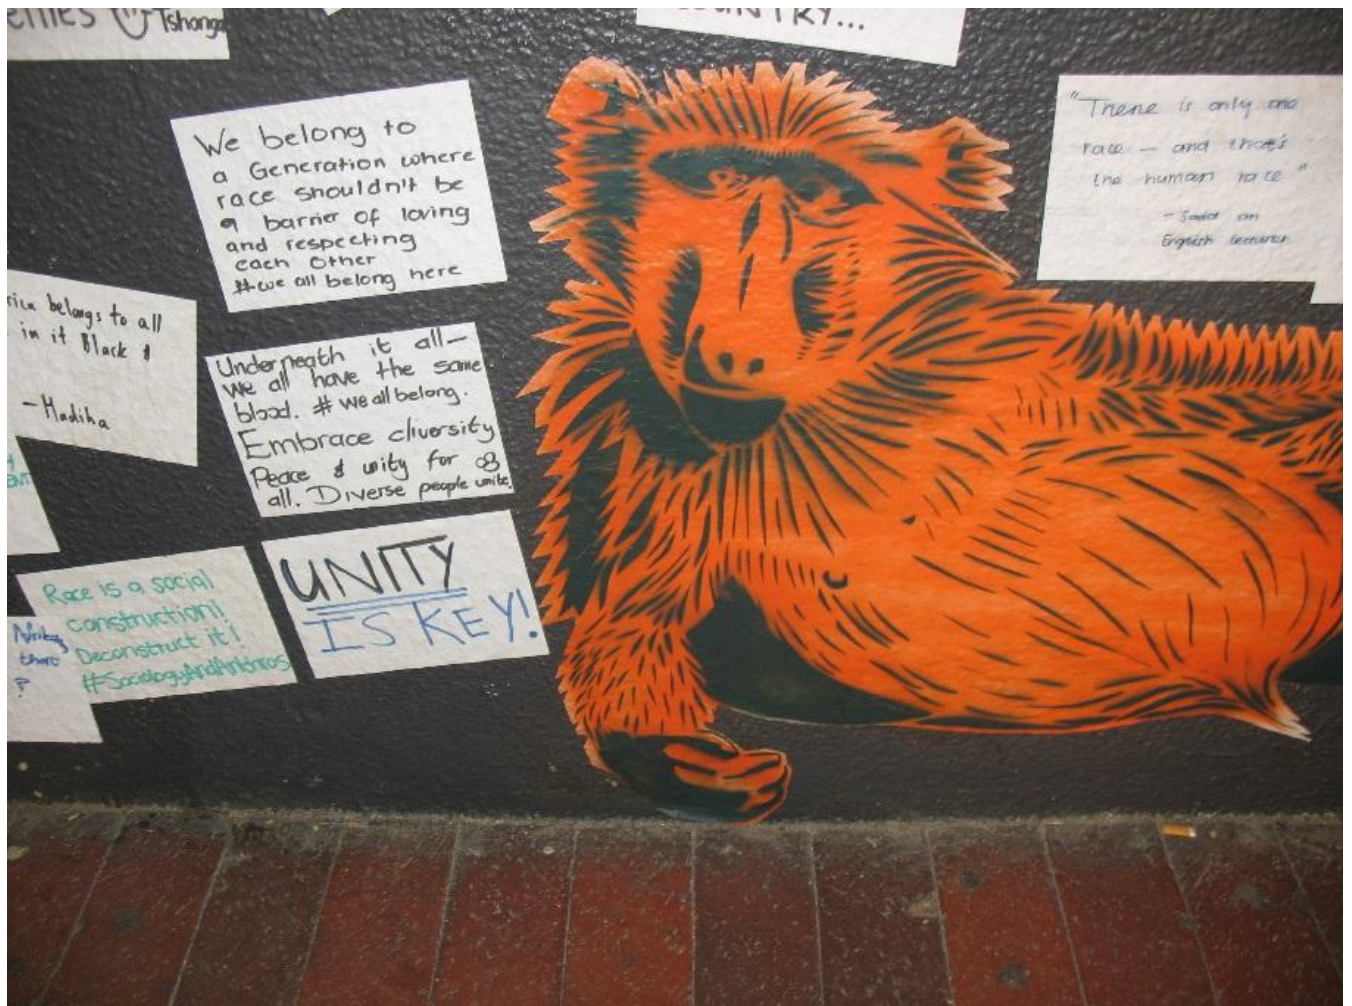 Tshonga
We belong to
a Generation where
race shouldn't be
a barrier of loving
and respecting
each other
#we all belong here
"There is only one
race — and that's
the human race"
- Said an
English lecturer
belongs to all
in it Black &
- Madiba
Underneath it all—
we all have the same
blood. # we all belong.
Embrace diversity
Peace & unity for
all. Diverse people unite.
Race is a social
construction!
Deconstruct it!
#SociologyAndAnthros
UNITY
IS KEY!
?